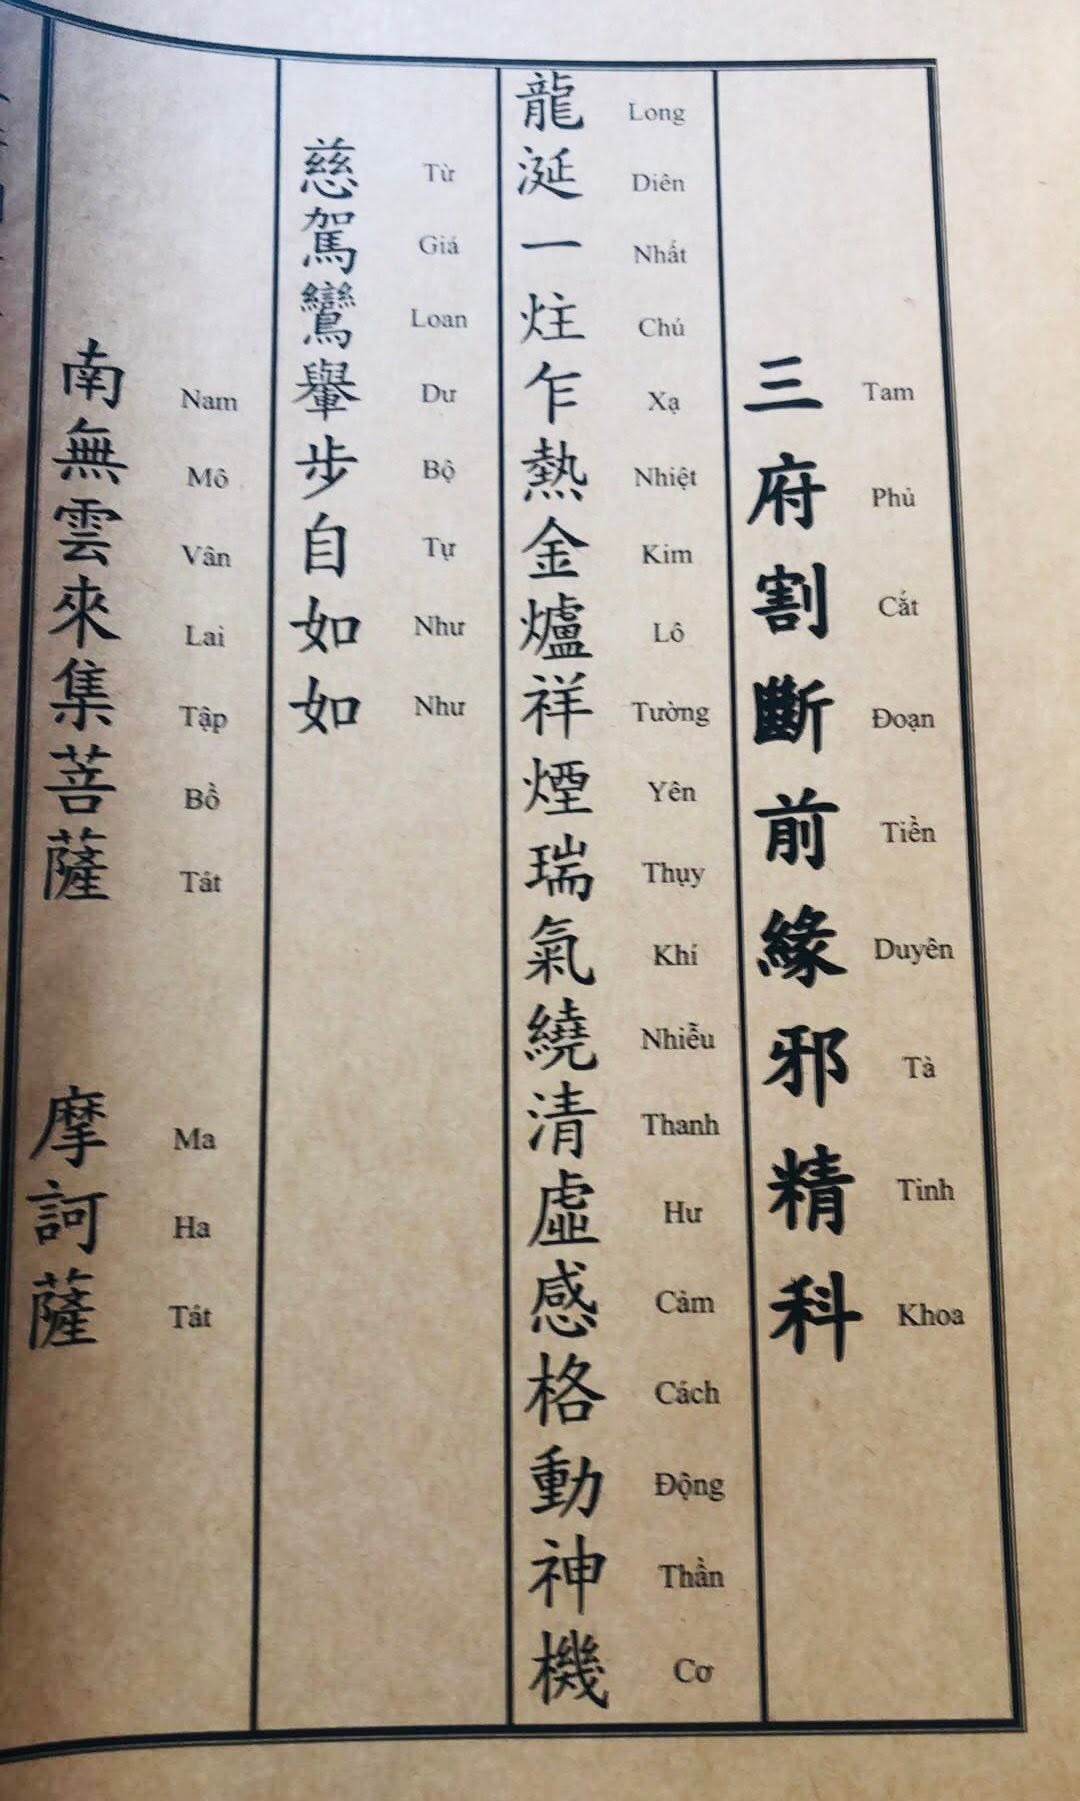 三府割斷前緣邪精科
Tam Phủ Cắt Đoạn Tiền Duyên Tà Tinh Khoa
龍涎一炷乍熱金爐祥煙瑞氣繞清虛感格動神機
Long Diên Nhất Chú Xạ Nhiệt Kim Lô Tường Yên Thụy Khí Nhiễu Thanh Hư Cảm Cách Động Thần Cơ
慈駕鸞轝步自如如
Từ Giá Loan Dư Bộ Tự Như Như
南無雲來集菩薩 摩訶薩
Nam Mô Vân Lai Tập Bồ Tát Ma Ha Tát